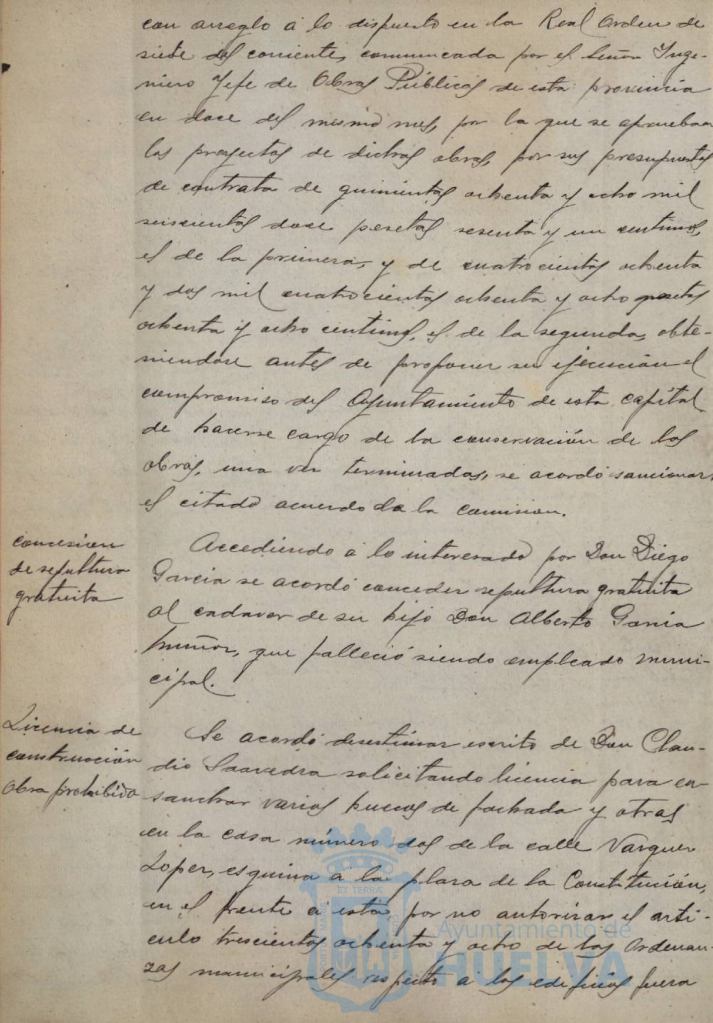 con arreglo á lo dispuesto en la Real Orden de
siete del corriente, comunicada por el Señor Inge-
niero Jefe de Obras Públicas de esta provincia
en doce del mismo mes, por la que se aprueban
los proyectos de dichas obras, por sus presupuestos
de contrata de quinientas ochenta y ocho mil
seiscientas doce pesetas sesenta y un centimos,
el de la primera, y de cuatrocientas ochenta
y dos mil cuatrocientas ochenta y ocho pesetas
ochenta y ocho centimos, el de la segunda, obte-
niendose antes de proponer su ejecución el
compromiso del Ayuntamiento de esta capital
de hacerse cargo de la conservación de las
obras, una vez terminadas, se acordó sancionar
el citado acuerdo de la comision.
concesion
de sepultura
gratuita
Accediendo á lo interesado por Don Diego
Garcia se acordó conceder sepultura gratuita
al cadaver de su hijo Don Alberto Garcia
Muñoz, que falleció siendo empleado muni-
cipal.
Licencia de
construcción
obra prohibido
Se acordó desestimar escrito de Don Clau-
dio Saavedra solicitando licencia para en-
sanchar varios huecos de fachada y otras
en la casa número dos de la calle Vazquez
Lopez, esquina a la plaza de la Constitución,
en el frente á esta, por no autorizar el arti-
culo trescientos ochenta y ocho de las Ordenan-
zas municipales respecto á los edificios fuera
Ayuntamiento de
HUELVA